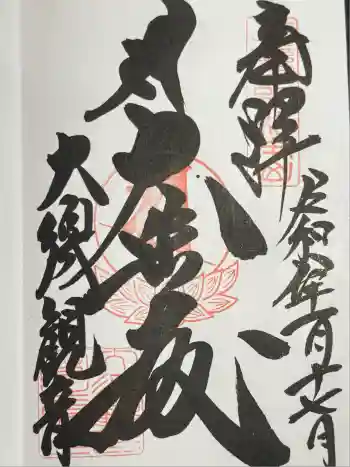 奉拝
令和 年一月十七日
大悲殿
大須観音